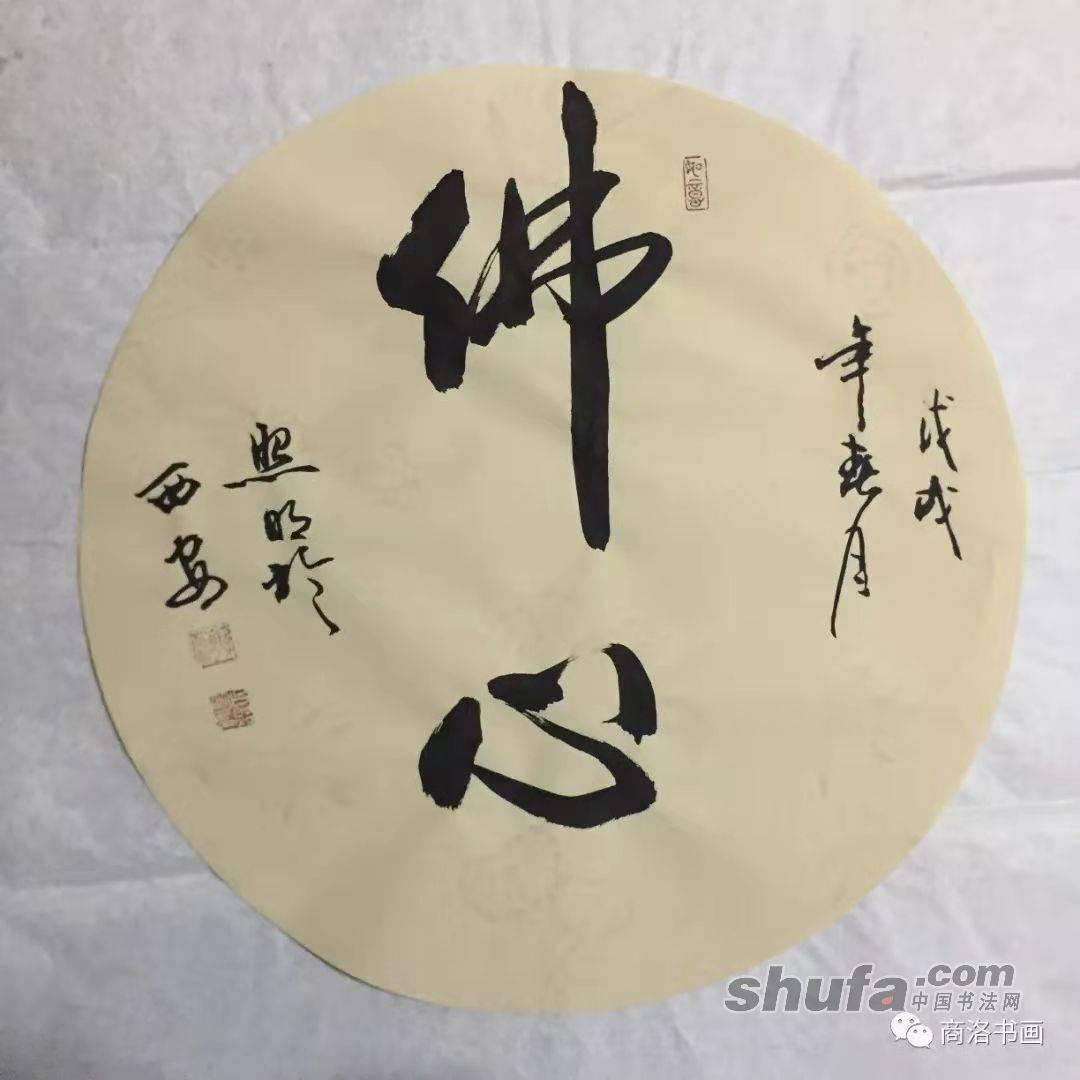 佛心
如意
戊戌
年春月
照明於
西安
shufa.com
中国书法网
商洛书画